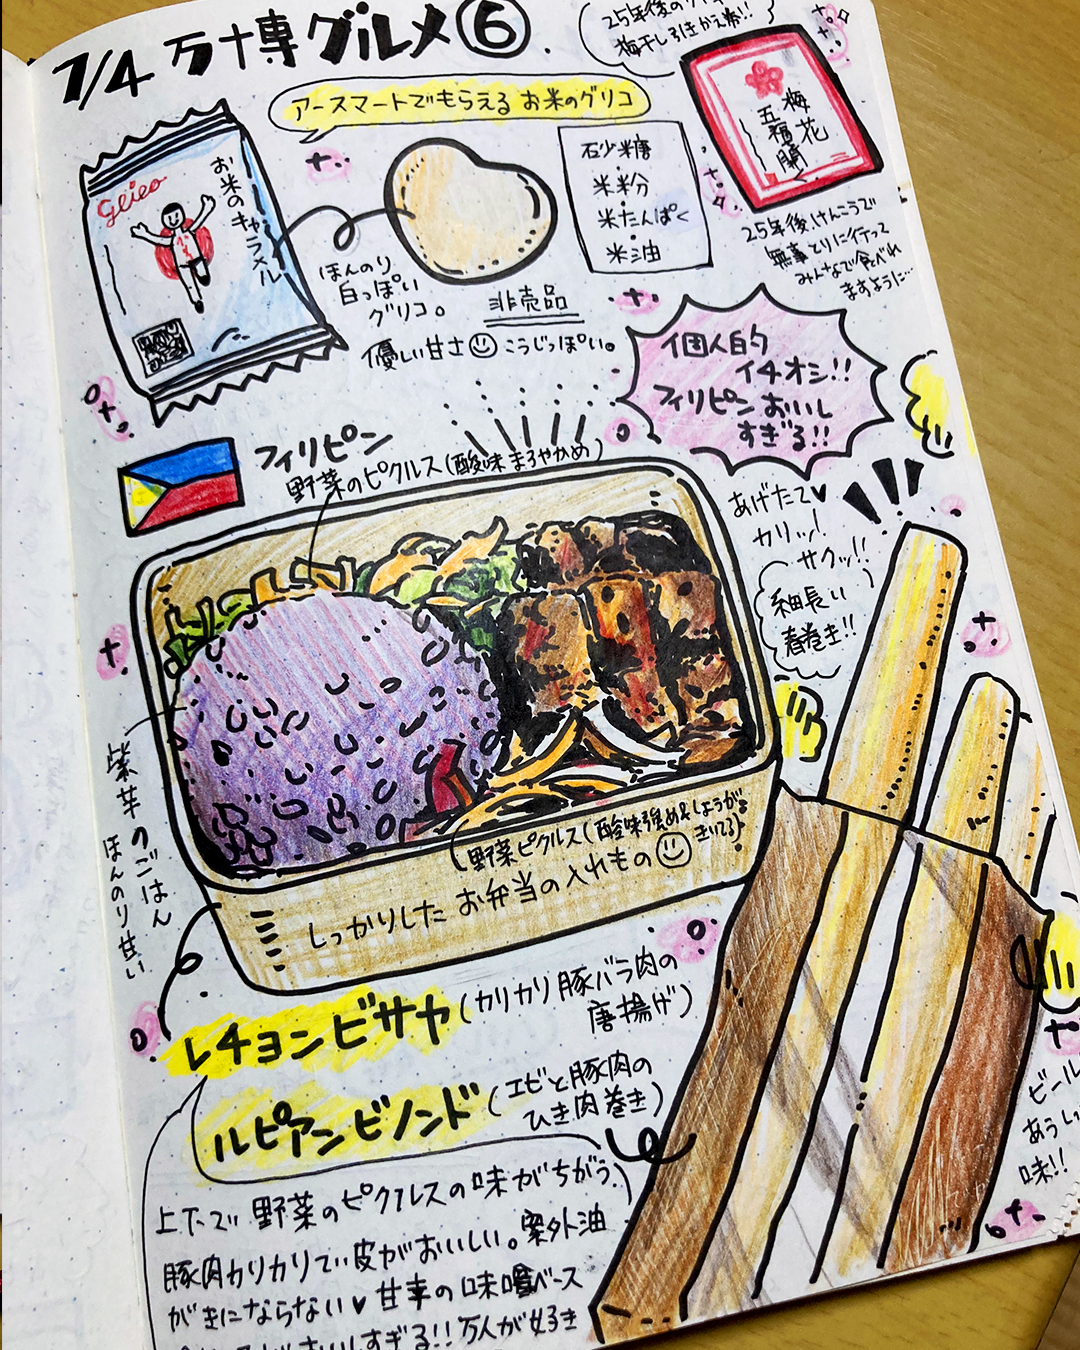 7/4 万博グルメ⑥.
25年後の
梅干し引きかえ券!!
アースマートでもらえる お米のグリコ
glico
お米のキャラメル
ほんのり
白っぽい
グリコ。
非売品
優しい甘さ こうじっぽい。
砂糖
・
米粉
・
米たんぱく
・
米油
梅花
五福
25年後、けんこうで
無事とりに行って
みんなで食べれ
ますように…
個人的
イチオシ!!
フィリピンおいし
すぎる!!
フィリピン
野菜のピクルス(酸味まろやかめ)
あげたて♥
カリッ!
サクッ!!
細長い
春巻き!!
紫芋のごはん
ほんのり甘い
野菜ピクルス(酸味強め&しょうが
きいてる)
しっかりした お弁当の入れもの
レチョンビサヤ(カリカリ豚バラ肉の
唐揚げ)
ルピアンビノンド(エビと豚肉の
ひき肉巻き)
ビール
あうい
味!!
上下で野菜のピクルスの味がちがう。
豚肉カリカリでい皮がおいしい。案外油
がきにならない♥ 甘辛の味噌ベース
おいしすぎる!! 万人が好き